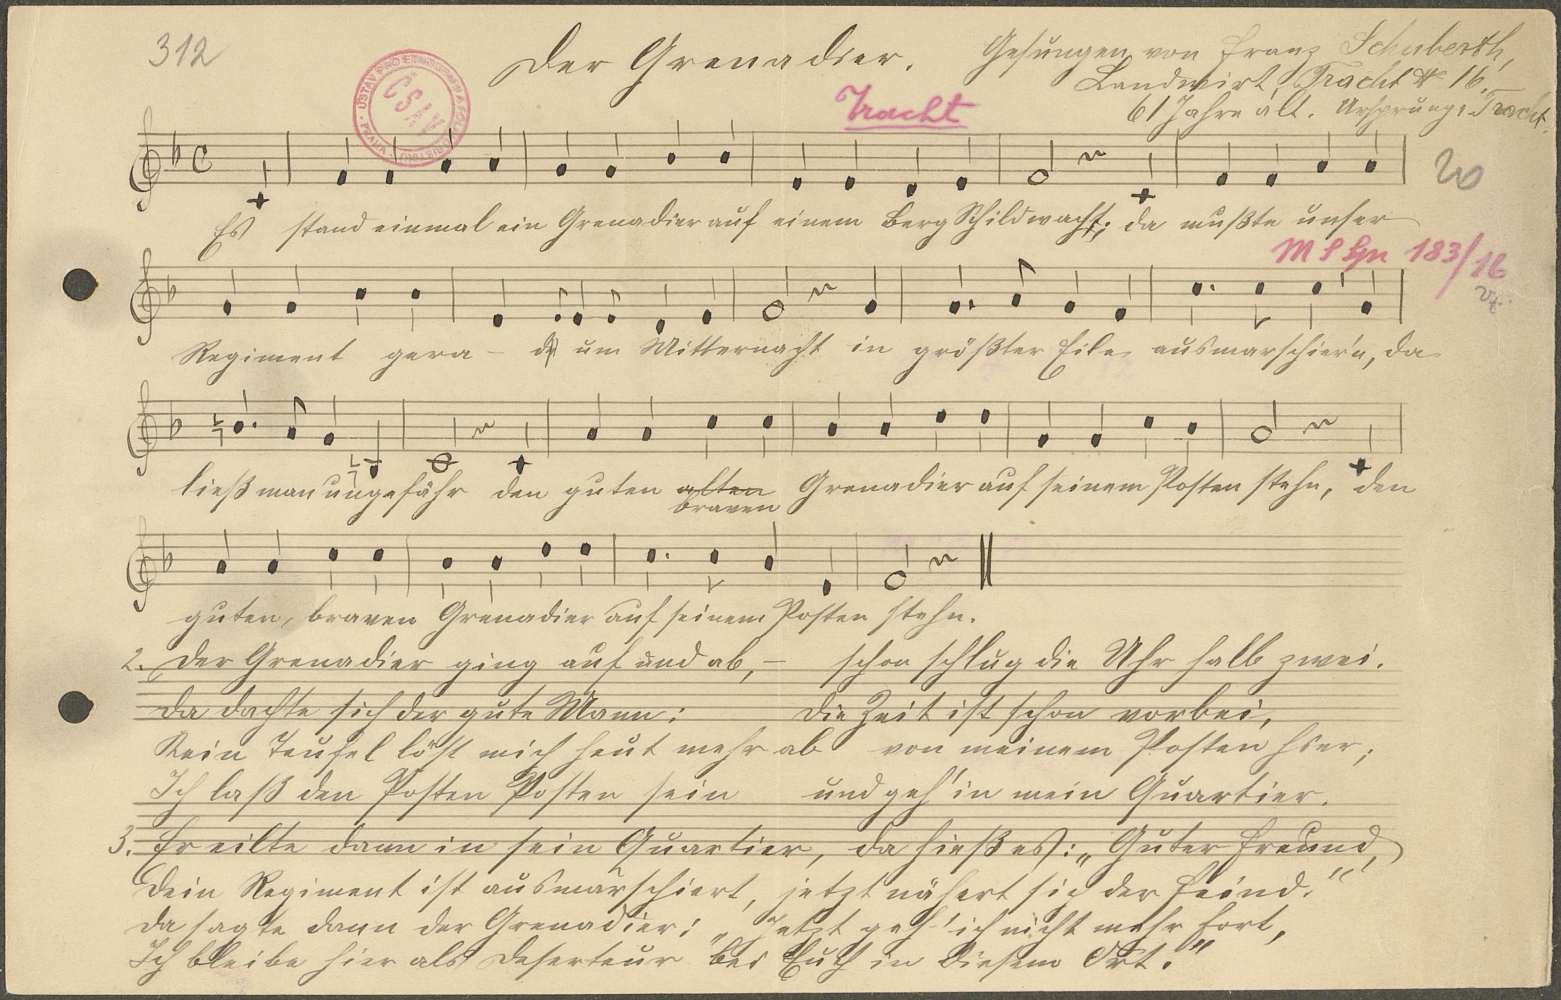 312
Der Grenadier.
Gesungen von Franz Schuberth,
Landwirt, Tracht № 16,
61 Jahre alt. Ursprung: Tracht.
Tracht
20
Es stand einmal ein Grenadier auf einem Berg Schildwacht; da mußte unser
M S Gn 183/16
Regiment gera- d um Mitternacht in größter Eile ausmarschier'n, da
ließ man ungefähr den guten alten Grenadier auf seinem Posten stehn, den
braven
guten, braven Grenadier auf seinem Posten stehn.
2. Der Grenadier ging auf und ab, – schon schlug die Uhr halb zwei.
Da dachte sich der gute Mann: Die Zeit ist schon vorbei,
Kein Teufel löst mich heut mehr ab von meinem Posten hier;
Ich laß den Posten Posten sein und geh' in mein Quartier.
3. Er eilte dann in sein Quartier, da hieß es: „Guter Freund,
Dein Regiment ist ausmarschiert, jetzt nähert sich der Feind."
Da sagte dann der Grenadier: „Jetzt geh' ich nicht mehr fort,
Ich bleibe hier als Deserteur bei Euch in diesem Ort."